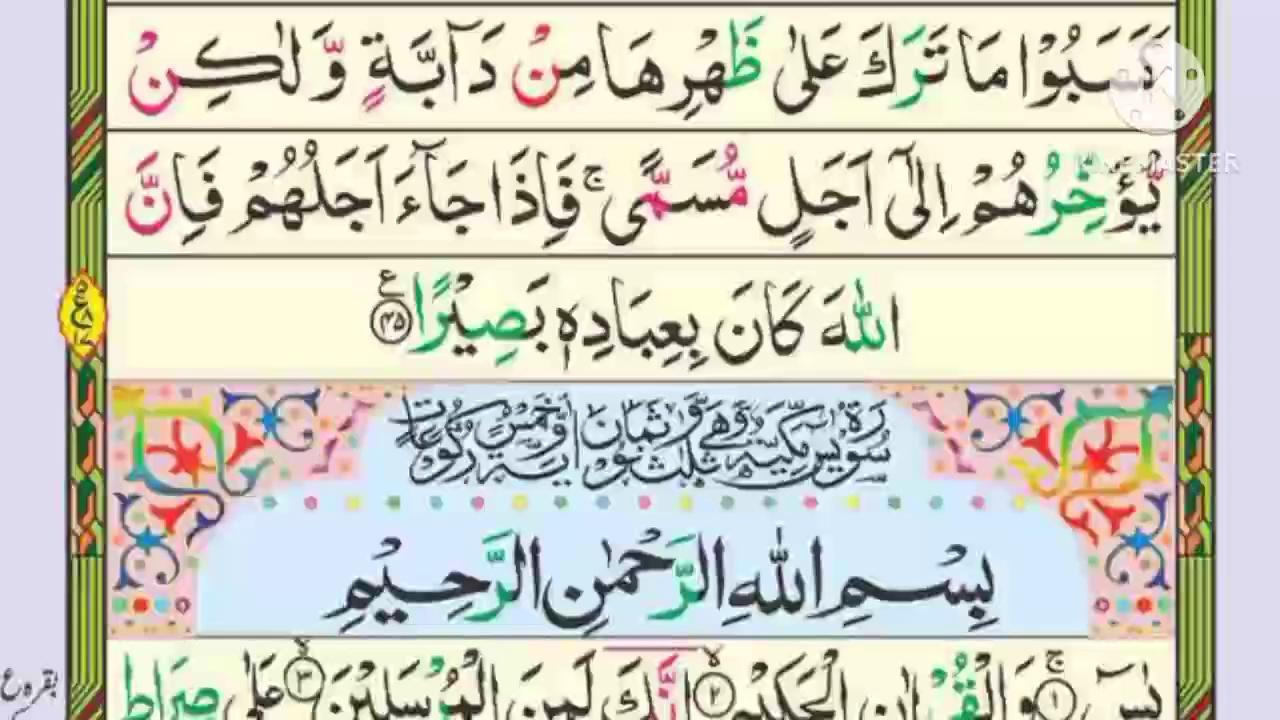 كَسَبُوْا مَا تَرَكَ عَلٰى ظَهْرِهَا مِنْ دَآبَّةٍ وَّ لٰكِنْ
يُّؤَخِّرُهُمْ اِلٰٓى اَجَلٍ مُّسَمًّى ۚ فَاِذَا جَآءَ اَجَلُهُمْ فَاِنَّ
اللّٰهَ كَانَ بِعِبَادِهٖ بَصِيْرًا ﴿۴۵﴾ ع
سُوْرَةُ يٰسٓ مَكِّيَّةٌ وَّهِيَ ثَلٰثٌ وَّثَمَانُوْنَ اٰيَةً وَّخَمْسُ رُكُوْعَاتٍ
بِسْمِ اللّٰهِ الرَّحْمٰنِ الرَّحِيْمِ
يٰسٓ ۚ ﴿۱﴾ وَالْقُرْاٰنِ الْحَكِيْمِ ۙ ﴿۲﴾ اِنَّكَ لَمِنَ الْمُرْسَلِيْنَ ۙ ﴿۳﴾ عَلٰى صِرَاطٍ